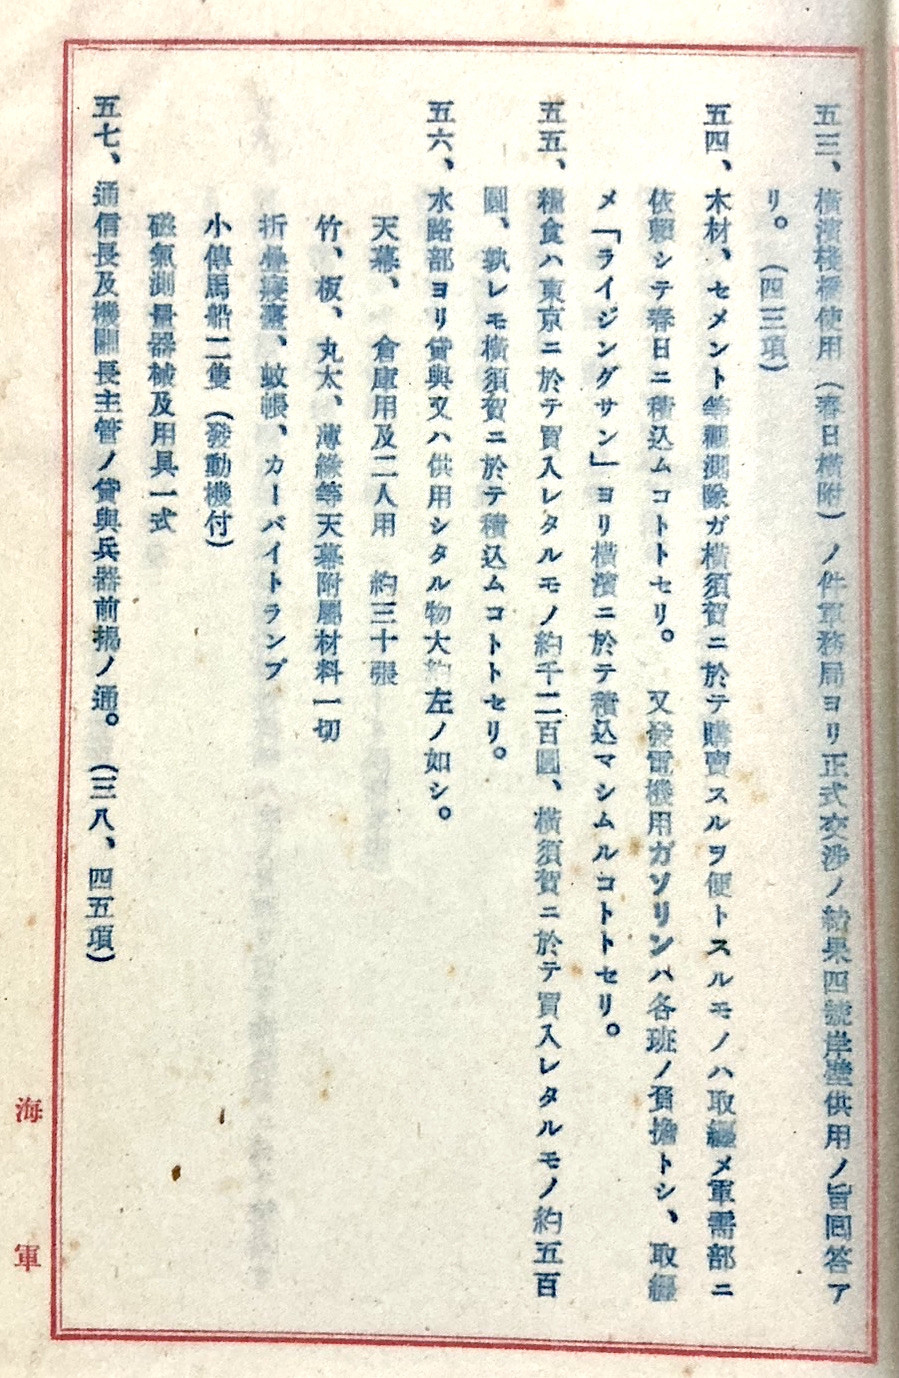 五三、橫濱棧橋使用（春日橫附）ノ件軍務局ヨリ正式交涉ノ結果四號岸壁供用ノ旨回答ア
リ。（四三項）
五四、木材、セメント等觀測隊ガ橫須賀ニ於テ購賣スルヲ便トスルモノハ取纒メ軍需部ニ
依賴シテ春日ニ積込ムコトトセリ。又發電機用ガソリンハ各班ノ負擔トシ、取纒
メ「ライジングサン」ヨリ橫濱ニ於テ積込マシムルコトトセリ。
五五、糧食ハ東京ニ於テ買入レタルモノ約千二百圓、橫須賀ニ於テ買入レタルモノ約五百
圓、孰レモ橫須賀ニ於テ積込ムコトトセリ。
五六、水路部ヨリ貸與又ハ供用シタル物大約左ノ如シ。
天幕、倉庫用及二人用　約三十張
竹、板、丸太、薄緣等天幕附屬材料一切
折疊寢臺、蚊帳、カーバイトランプ
小傳馬船二隻（發動機付）
磁氣測量器械及用具一式
五七、通信長及機關長主管ノ貸與兵器前揭ノ通。（三八、四五項）
海軍